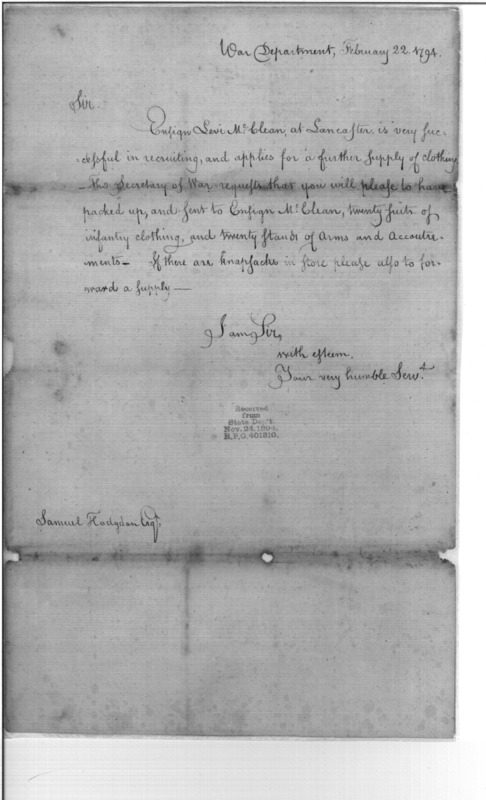 War Department, February 22. 1794.
Sir
Ensign Levi McClean, at Lancaster is very suc-
-cessful in recruiting, and applies for a further supply of clothing
- The Secretary of War requests that you will please to have
packed up, and sent to Ensign McClean, twenty suits of
infantry clothing, and twenty stands of Arms and Accoutre-
ments - If there are knapsacks in store please also to for-
ward a supply —
I am Sir,
with esteem.
Your very humble Servt.
Received
from
State Dep't
Nov. 23, 1904.
R.P.O. 401810.
Samuel Hodgdon Esqr.